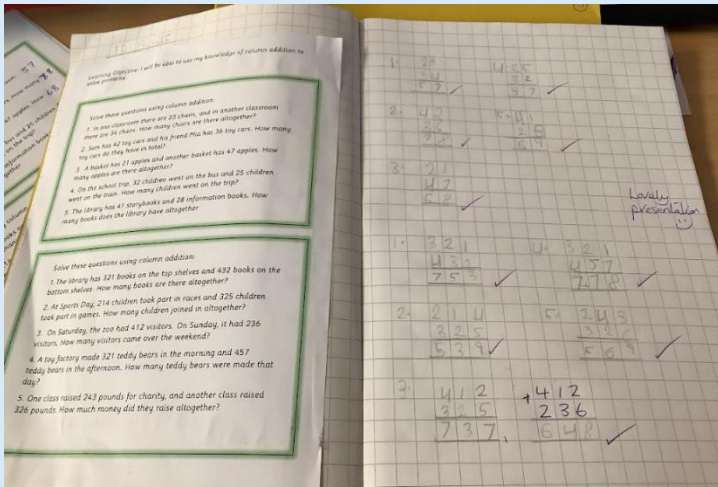 57
How many 78
apples. How 68
and 25 children
on the trip?
information book
gether
Learning Objective: I will be able to use my knowledge of column addition to
solve problems.
Solve these questions using column addition:
1. In one classroom there are 23 chairs, and in another classroom
there are 34 chairs. How many chairs are there altogether?
2. Sam has 42 toy cars and his friend Mia has 36 toy cars. How many
toy cars do they have in total?
3. A basket has 21 apples and another basket has 47 apples. How
many apples are there altogether?
4. On the school trip, 32 children went on the bus and 25 children
went on the train. How many children went on the trip?
5. The library has 41 storybooks and 28 information books. How
many books does the library have altogether
Solve these questions using column addition:
1. The library has 321 books on the top shelves and 432 books on the
bottom shelves. How many books are there altogether?
2. At Sports Day, 214 children took part in races and 325 children
took part in games. How many children joined in altogether?
3. On Saturday, the zoo had 412 visitors. On Sunday, it had 236
visitors. How many visitors came over the weekend?
4. A toy factory made 321 teddy bears in the morning and 457
teddy bears in the afternoon. How many teddy bears were made that
day?
5. One class raised 243 pounds for charity, and another class raised
326 pounds. How much money did they raise altogether?
1. 23 4. 25
34 32
57 57
2. 42 5. 41
36 28
78 69
3. 21
47
68
Lovely
presentation
1. 321 4. 321
432 457
753 778
2. 214 5. 243
325 326
539 569
3. 412 +412
325 236
737 648